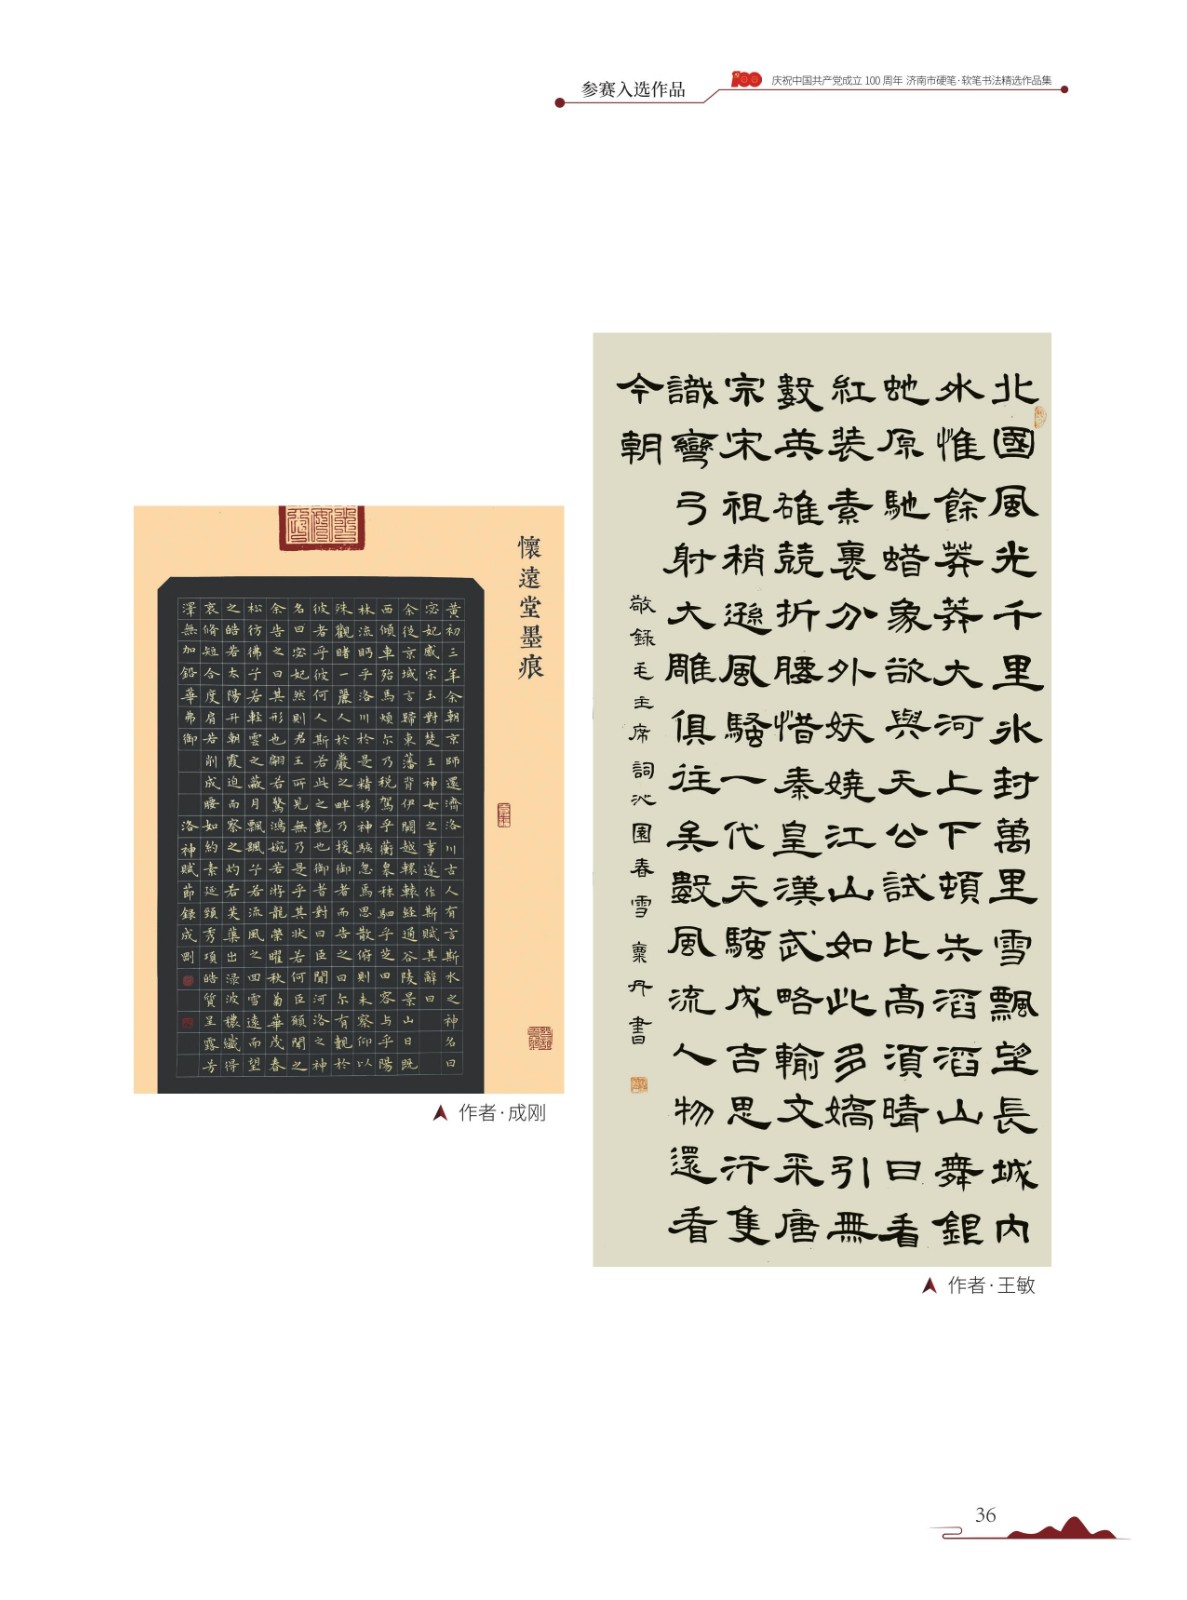 参赛入选作品
100 庆祝中国共产党成立 100 周年 济南市硬笔·软笔书法精选作品集
懷遠堂墨痕
黄初三年余朝京師還濟洛川古人有言斯水之神名曰
宓妃感宋玉對楚王神女之事遂作斯賦其辭曰
余従京域言歸東藩背伊闕越轘轅經通谷陵景山日既
西傾車殆馬煩尔乃税駕乎蘅皋秣駟乎芝田容与乎陽
林流眄乎洛川於是精移神駭忽焉思散俯則未察仰以
殊觀睹一麗人於巖之畔乃援御者而告之曰尔有覿於
彼者乎彼何人斯若此之艶也御者對曰臣聞河洛之神
名曰宓妃然則君王所見無乃是乎其状若何臣願聞之
余告之曰其形也翩若驚鴻婉若游龍榮曜秋菊華茂春
松彷彿子若輕雲之蔽月飄飖子若流風之回雪遠而望
之皓若太陽升朝霞迫而察之灼若芙蕖出渌波穠纖得
衷脩短合度肩若削成腰如約素延頸秀項皓質呈露芳
澤無加鉛華弗御 洛神賦節録成剛
作者·成刚
北國風光千里氷封萬里雪飄望長城内
水惟餘莽莽大河上下頓失滔滔山舞銀
虵原馳蜡象欲與天公試比髙湏晴日看
紅装素裹分外妖嬈江山如此多嬌引無
數英雄競折腰惜秦皇漢武略輸文采唐
宗宋祖稍遜風騷一代天驕成吉思汗隻
識彎弓射大雕俱往矣數風流人物還看
今朝
敬録毛主席詞沁園春雪 丹書
作者·王敏
36